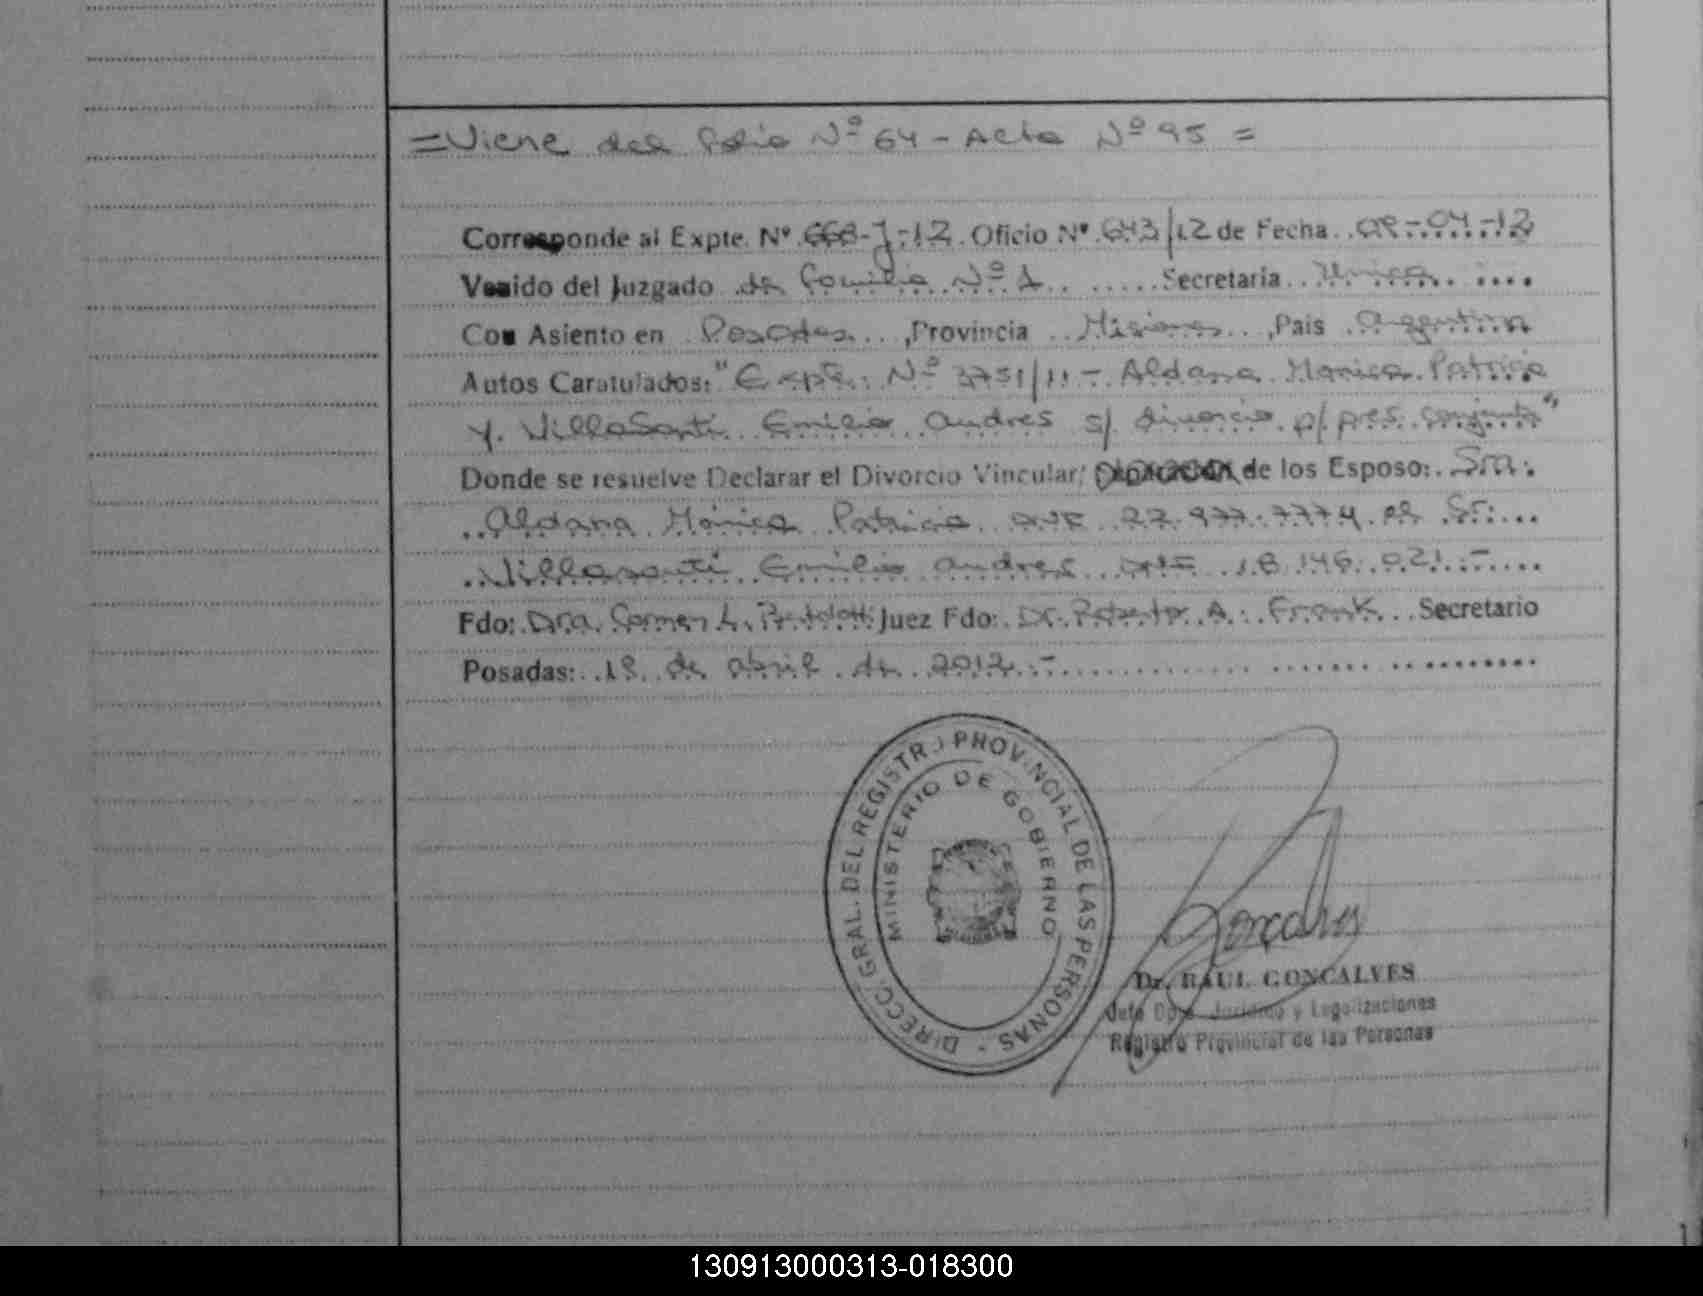 = Viene del folio Nº 64 - Acta Nº 95 =
Corresponde al Expte. Nº 668-J-12 Oficio Nº 643/12 de Fecha 09-04-12
Venido del Juzgado de Familia Nº 1 Secretaria Unica
Con Asiento en Posadas, Provincia Misiones, Pais Argentina
Autos Caratulados: "Expte. Nº 3751/11 - Aldana Monica Patricia
y Villasanti Emilio Andres s/ divorcio p/ pres. conjunta"
Donde se resuelve Declarar el Divorcio Vincular/ de los Esposo: Sra.
Aldana Mónica Patricia DNI el Sr.
Villasanti Emilio Andres DNI 18.146.021.-
Fdo: Dra. Carmen L. Juez Fdo: Dr. Roberto A. Frank Secretario
Posadas: 18 de abril de 2012.-
DIRECC. GRAL. DEL REGISTRO PROVINCIAL DE LAS PERSONAS -
MINISTERIO DE GOBIERNO
Goncalves
Dr. RAUL GONCALVES
Jefe Dpto. Juridico y Legalizaciones
Registro Provincial de las Personas
130913000313-018300